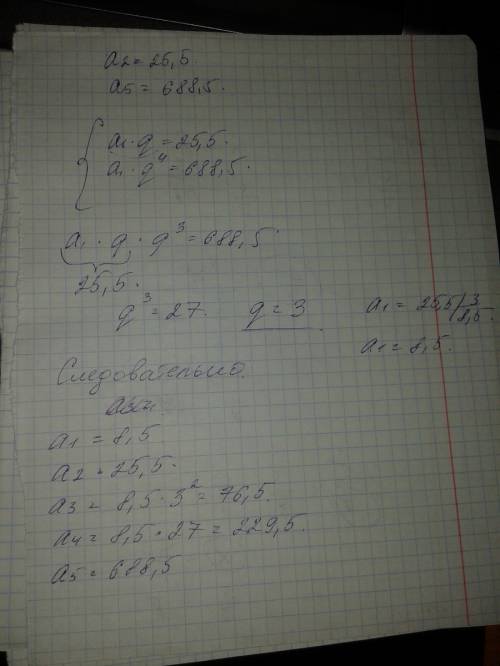 a2 = 25,5.
a5 = 688,5.
a1 · q = 25,5.
a1 · q⁴ = 688,5.
a1 · q · q³ = 688,5.
25,5.
q³ = 27. q = 3
a1 = 25,5 | 3
8,5.
a1 = 8,5.
Следовательно.
a1 = 8,5
a2 = 25,5.
a3 = 8,5 · 3² = 76,5.
a4 = 8,5 · 27 = 229,5.
a5 = 688,5